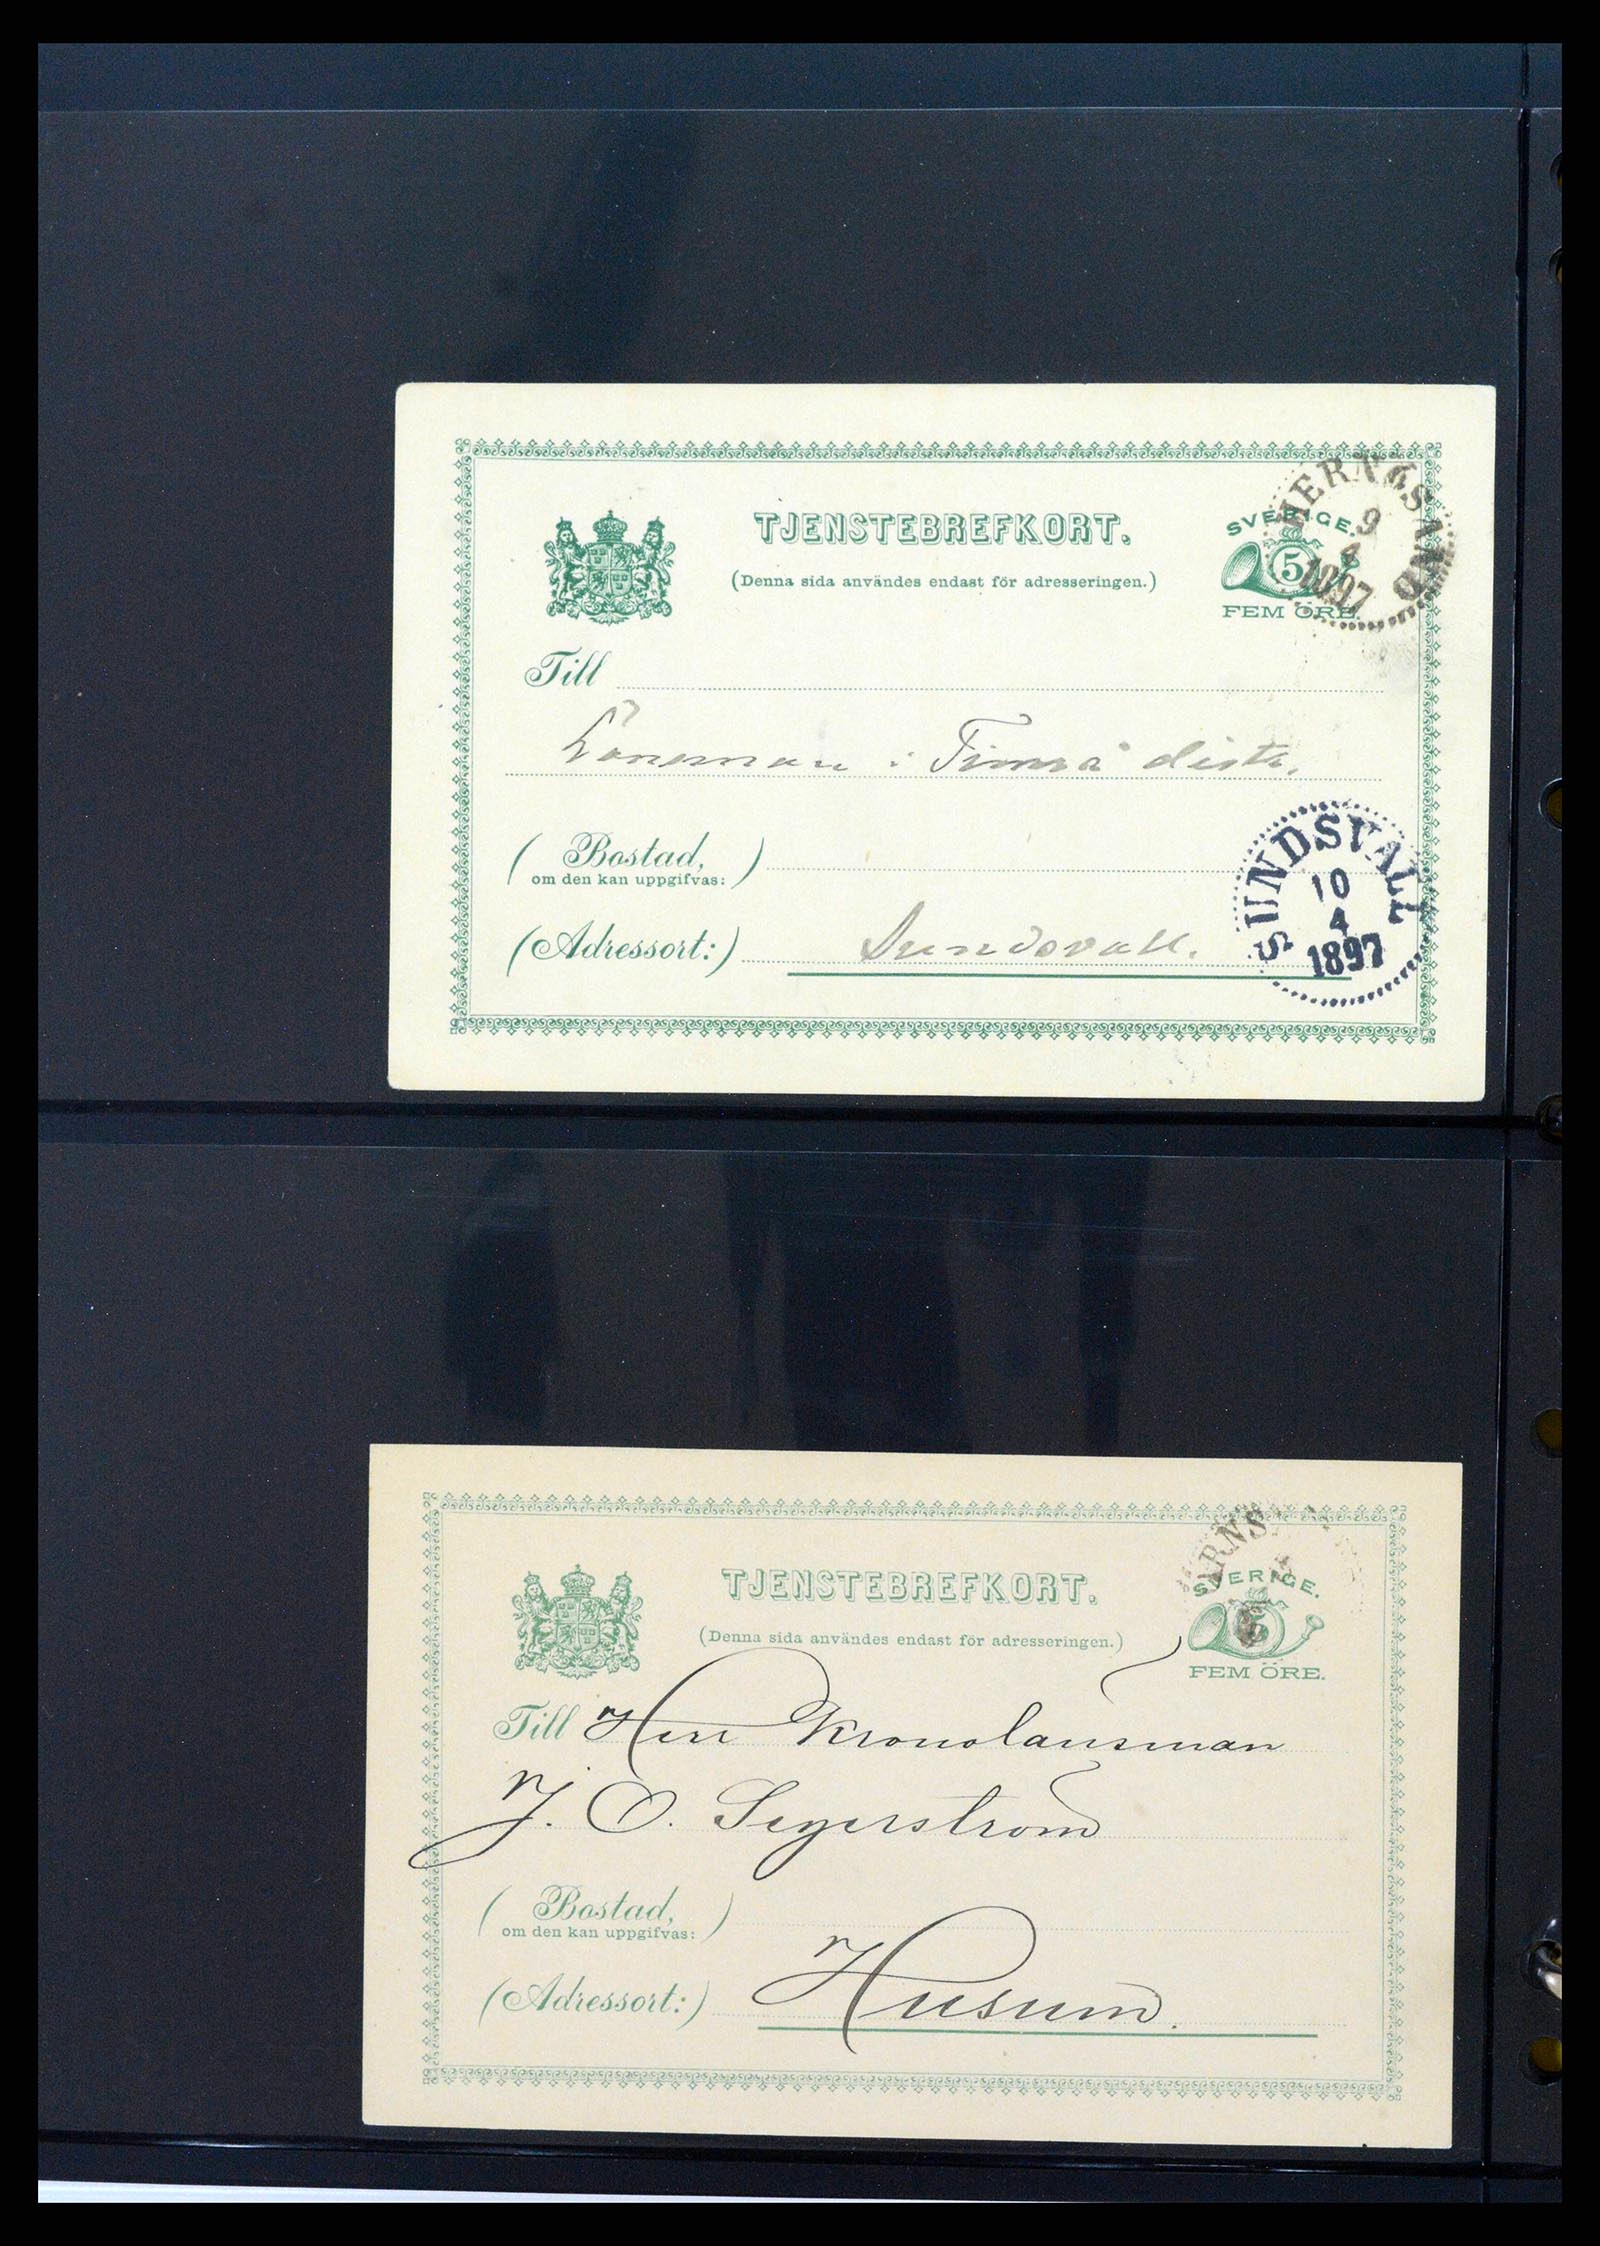 TJENSTEBREFKORT.
(Denna sida användes endast för adresseringen.)
SVERIGE.
5
FEM ÖRE.
HERNÖSAND
9
4
1897
Till
Länsman i Timrå distr.
(Bostad,
om den kan uppgifvas:)
(Adressort:) Sundsvall.
SUNDSVALL
10
4
1897
TJENSTEBREFKORT.
(Denna sida användes endast för adresseringen.)
SVERIGE.
5
FEM ÖRE.
Till Herr Kronolänsman
J. O. Segerström
(Bostad,
om den kan uppgifvas:)
(Adressort:) Husum.